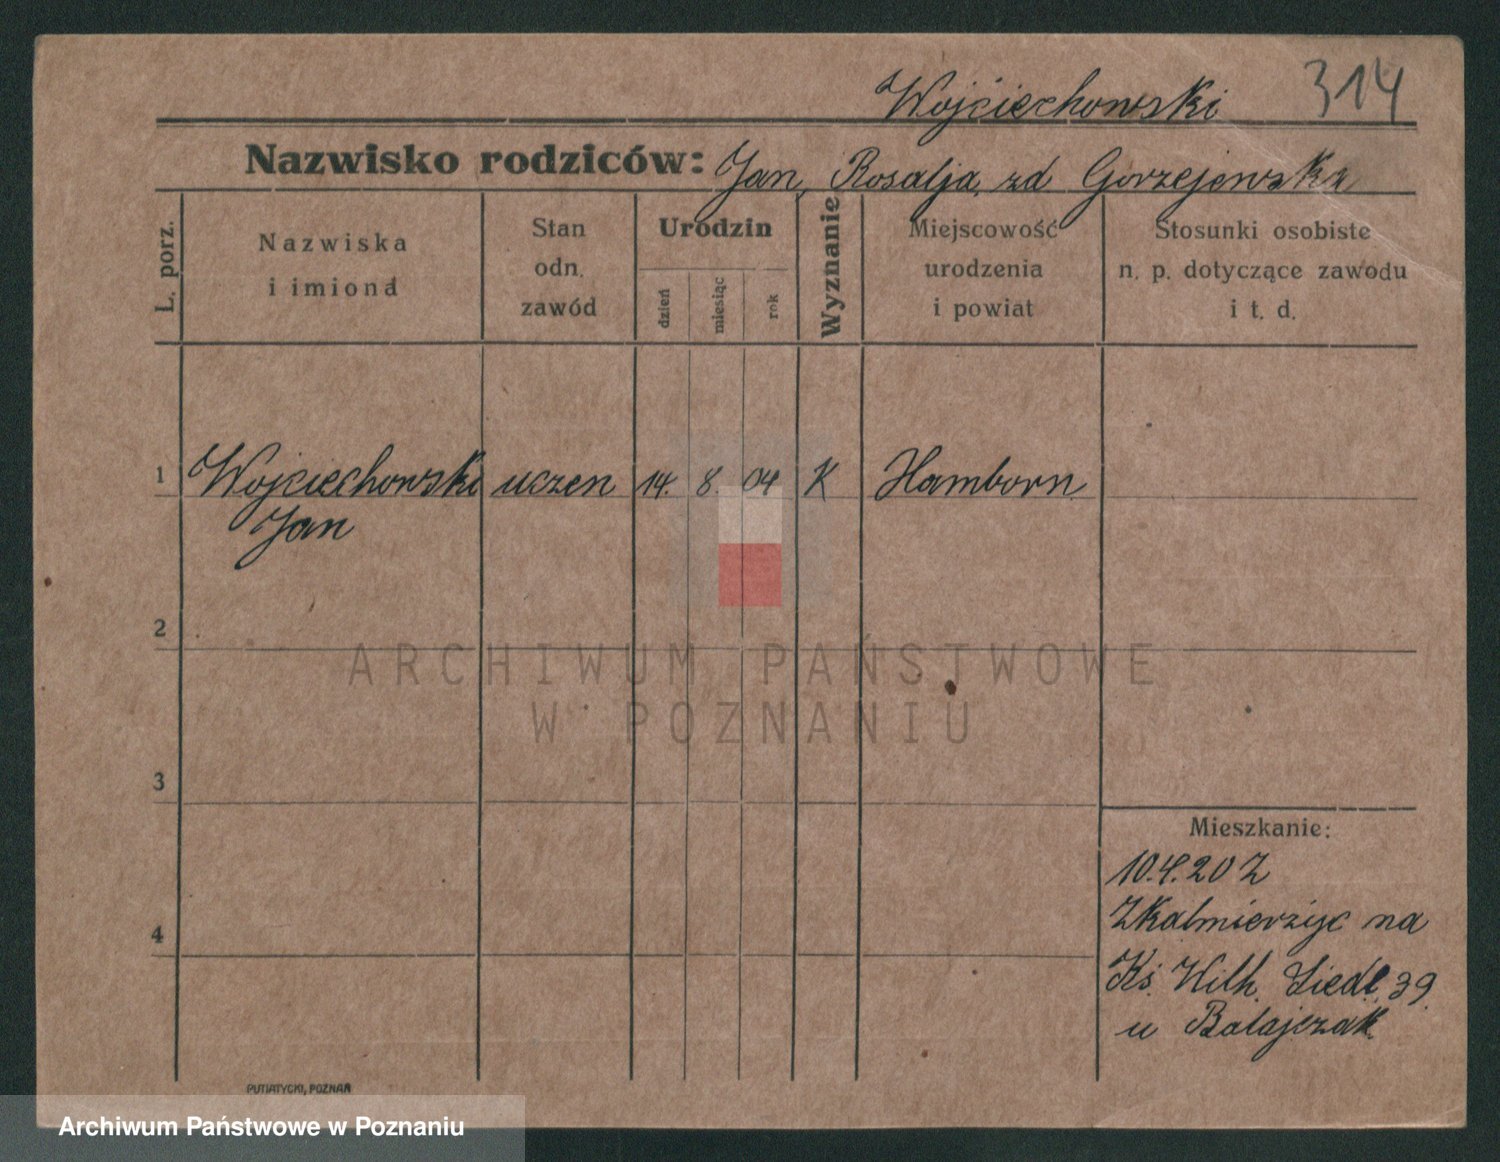 314
Wojciechowski
Nazwisko rodziców: Jan, Rosalja, zd Gorzejewska
L. porz.
Nazwiska
i imiona
Stan
odn.
zawód
Urodzin
dzień
miesiąc
rok
Wyznanie
Miejscowość
urodzenia
i powiat
Stosunki osobiste
n. p. dotyczące zawodu
i t. d.
1 Wojciechowski uczen 14. 8. 04 K Hamborn
Jan
2
ARCHIWUM PAŃSTWOWE
W POZNANIU
3
Mieszkanie:
10.4.20 Z
4
Zkalmierzyc na
Ks. Wilh. Siedl. 39.
u Balajczak
PUTIATYCKI, POZNAŃ
Archiwum Państwowe w Poznaniu